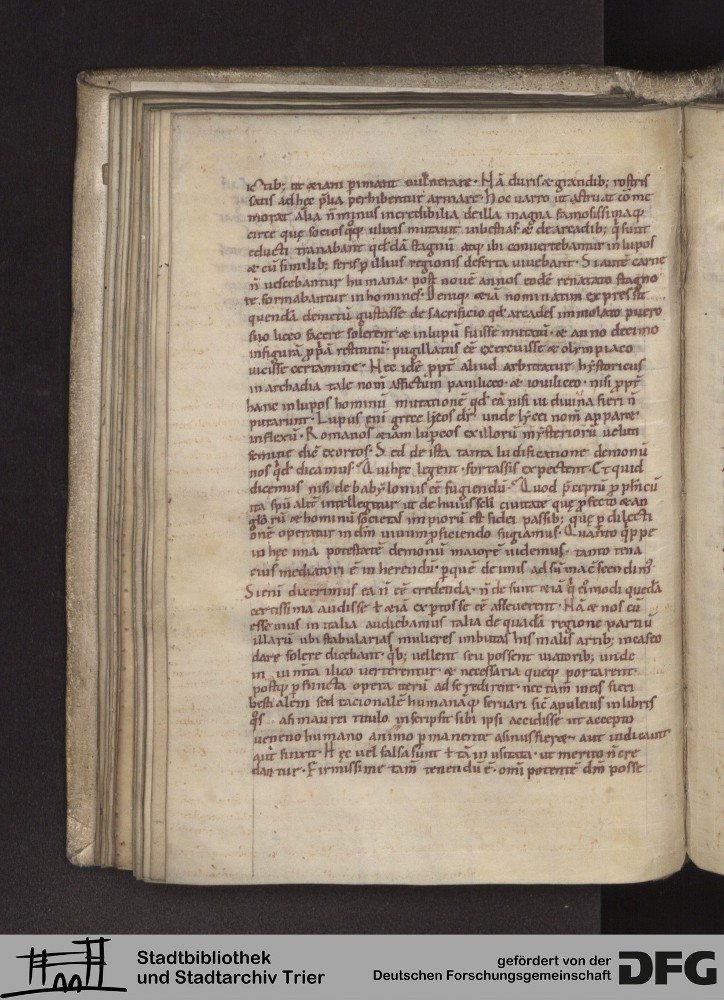 ictib; ut etiam pimant vulnerare. Nā duris & grandib; rostris
satis ad hęc p̄lia perhibentur armare. Hoc varro ut astruat cōme
morat alia n̄ minus incredibilia de illa magna famosissimaq;
circe que socios q;q; ulixis mutavit in bestias & de arcadib; q̄ sunt
educti tranabant qd̄dā stagnū atq; ibi convertebantur in lupos
& cū similib; feris p illius regionis deserta vivebant. Si autē carne
n̄ vescebantur humana. post novē annos eodē renatato stagno
re formabantur in homines. Deniq; etiā nominatim expressit
quendā demetū gustasse de sacrificio qd̄ arcades immolato puero
suo liceo facere solerent & in lupū fuisse mutatū. & anno decimo
in figurā pp̄ā restitutū. pugillatus cē exercuisse & olympiaco
vicisse certamine. Nec idē ppt̄ aliud arbitratur hystoricus
in archadia tale nom̄ affictum pani liceo. & iovi liceo. nisi ppt̄
hanc in lupos hominū mutationē qd̄ eā nisi vi divina fieri n̄
putarunt. Lupus enī grece lycos dr̄. unde lycei nom̄ apparet
inflexū. Romanos etiam lupeos ex illorū mysteriorū veluti
semine dic̄ exortos. Sed de ista tanta ludificatione demonū
nos qd̄ dicamus. Qui hęc legent. fortassis expectent. Et quid
dicemus nisi de babylonis cē fugiendū. Quod p̄ceptū pphicū
ita spū alit̄ intellegitur ut de huius sc̄li civitate que pfecto & an
glorū & hominū societas impiorū est fidei passib; que p dilecti
onē operatur in dm̄ vivum pficiendo fugiamus. Quanto q̄ppe
in hęc ima potestatē demonū maiorē videmus. tanto tena
cius mediatori ē inherendū. p quē de imis ad sūma c̄scendim̄.
Si enī dixerimus ea n̄ cē credenda. n̄ desunt etiā q̄ ei modi quedā
certissima audisse ł etiā exptos se cē asseverent. Nā & nos cū
essemus in italia audiebamus talia de quadā regione partiū
illarū ubi stabularias mulieres imbutas his malis artib; in caseo
dare solere dicebant. qb; vellent seu possent viatorib; unde
in iumta ilico verterentur & necessaria queq; portarent.
postq; pfuncta opera iterū ad se redirent. nec tam̄ in eis fieri
bestialem sed racionalē humanaq; servari sic̄ apuleius in libris
qs asini aurei titulo inscripsit sibi ipsi accidisse ut accepto
veneno humano animo pmanente asinus fieret. aut indicavit
aut finxit. Hęc vel falsa sunt ł tā inusitata. ut merito n̄ cre
dantur. Firmissime tam̄ tenendū ē. omīpotentē dm̄ posse
Stadtbibliothek
und Stadtarchiv Trier
gefördert von der
Deutschen Forschungsgemeinschaft
DFG